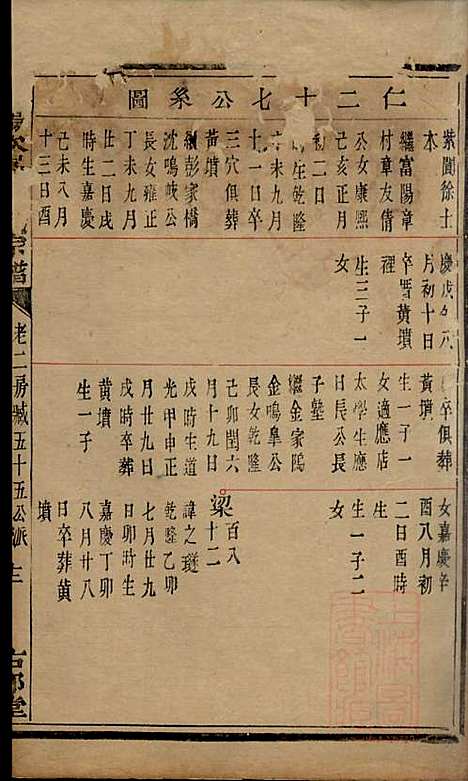 仁二十七公系圖
紫閬徐士
本
繼富陽章
村章友倩
公女康熙
己亥正月
初二日
時生乾隆
辛未九月
十一日卒
三穴俱葬
黃墳
繼彭家橋
沈鳴岐公
長女雍正
丁未九月
廿二日戌
時生嘉慶
己未八月
十三日酉
慶戊午八
月初十日
卒暨黃墳
裡
生三子一
女
卒俱葬
黃墳
生一子一
女適應店
太學生應
日辰公長
子塾
繼金家隖
金鳴皐公
長女乾隆
己卯閏六
月十九日
戌時生道
光甲申正
月廿九日
戌時卒葬
黃墳
生一子
女嘉慶辛
酉八月初
二日酉時
生
生一子二
女
梁
百八
十二
諱之璲
乾隆乙卯
七月廿九
日卯時生
嘉慶丁卯
八月廿八
日卒葬黃
墳
宗譜
老二房臧五十五公派
三